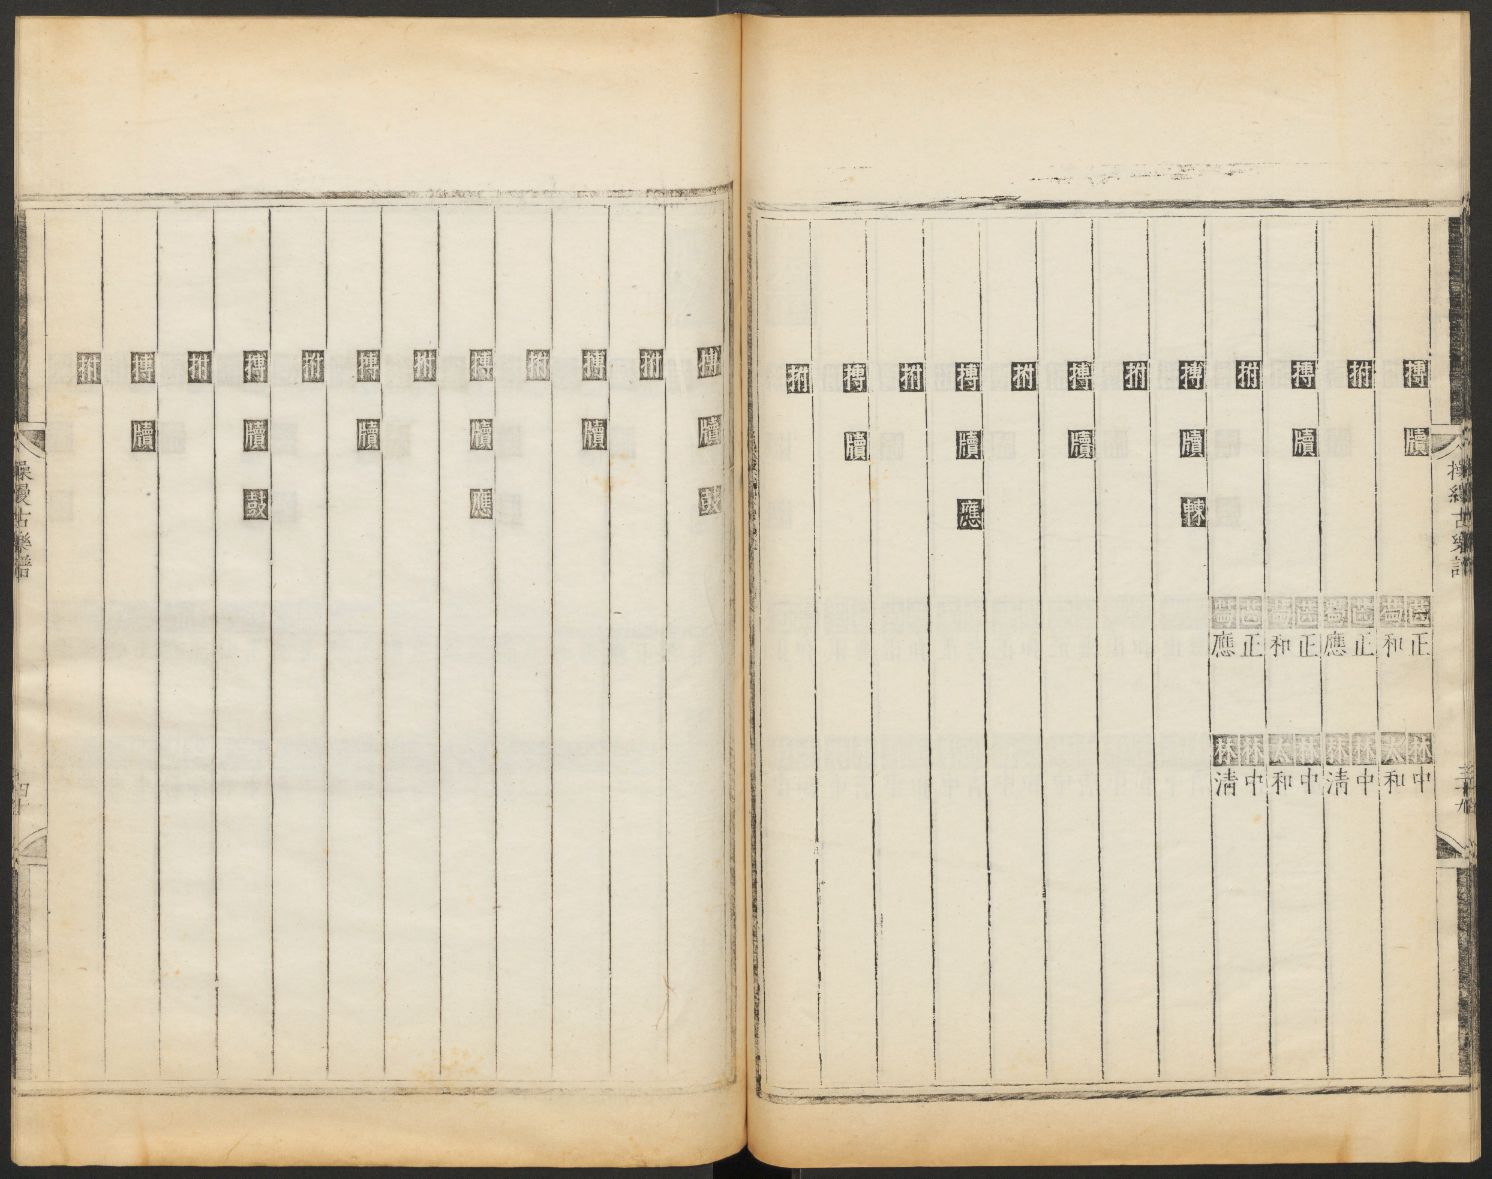 操縵古樂譜
三十九
搏 牘 正 林 中 和 太 和
拊 正 林 中 應 林 清
搏 牘 正 林 中 和 太 和
拊 正 林 中 應 林 清
搏 牘
拊
搏 牘
拊
搏 牘 應
拊
搏 牘
拊
搏 牘 鼓
拊
搏 牘
拊
搏 牘 應
拊
搏 牘
拊
搏 牘 鼓
拊
搏 牘
拊
操縵古樂譜
四十